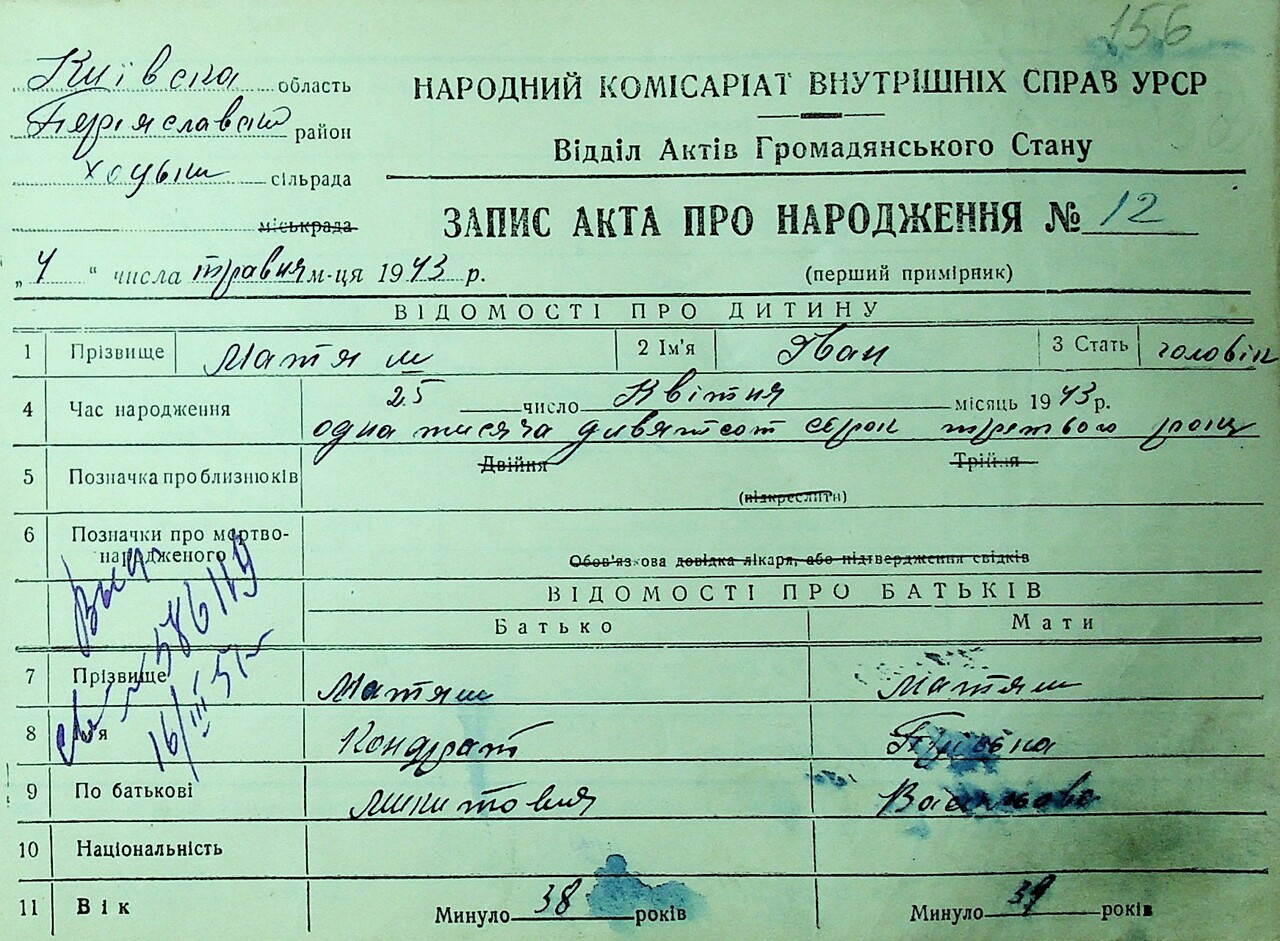 156
Київска область
НАРОДНИЙ КОМІСАРІАТ ВНУТРІШНІХ СПРАВ УРСР
район
Відділ Актів Громадянського Стану
Хоцьки сільрада
міськрада
ЗАПИС АКТА ПРО НАРОДЖЕННЯ № 12
„4“ числа травня м-ця 1943 р.
(перший примірник)
ВІДОМОСТІ ПРО ДИТИНУ
1 Прізвище Матяш 2 Ім'я Іван 3 Стать чоловік
4 Час народження 25 число Квітня місяць 1943 р.
одна тисяча дивятсот сорок третього року
5 Позначка про близнюків Двійня Трійня
(підкреслити)
6 Позначки про мертво-
народженого
Обов'язкова довідка лікаря, або підтвердження свідків
ВІДОМОСТІ ПРО БАТЬКІВ
Батько Мати
7 Прізвище Матяш Матяш
8 Ім'я Кондрат
9 По батькові Микитович
10 Національність
11 Вік Минуло 38 років Минуло років
586119
16/III 51